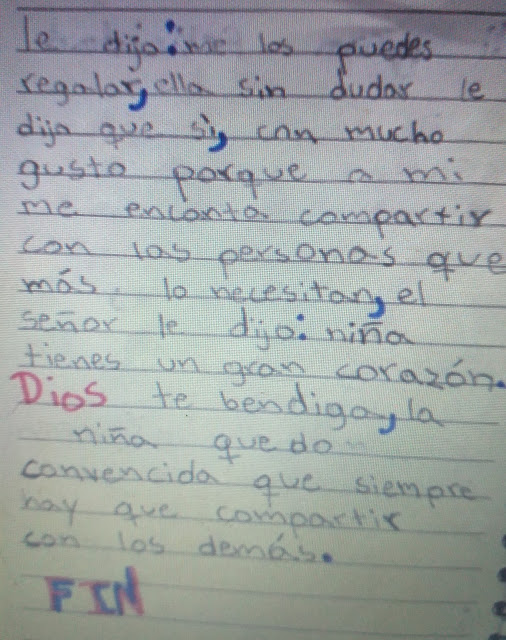 le dijo: me los puedes
regalar, ella sin dudar le
dijo que sí, con mucho
gusto porque a mi
me enconta compartir
con las personas que
más lo necesitan, el
señor le dijo: niña
tienes un gran corazón.
Dios te bendiga, la
niña quedo
convencida que siempre
hay que compartir
con los demás.
FIN